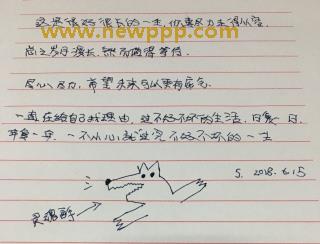 这是很好很长的一生，你要尽力走得从容
www.newppp.com
尚之岁月漫长，然而值得等待.
尽心尽力，希望未来可以更有底气.
一直在给自己找理由，过不好不坏的生活，日复一日，
一不小心就过完不好不坏的一生
5. 2018. 6.15
灵魂画手